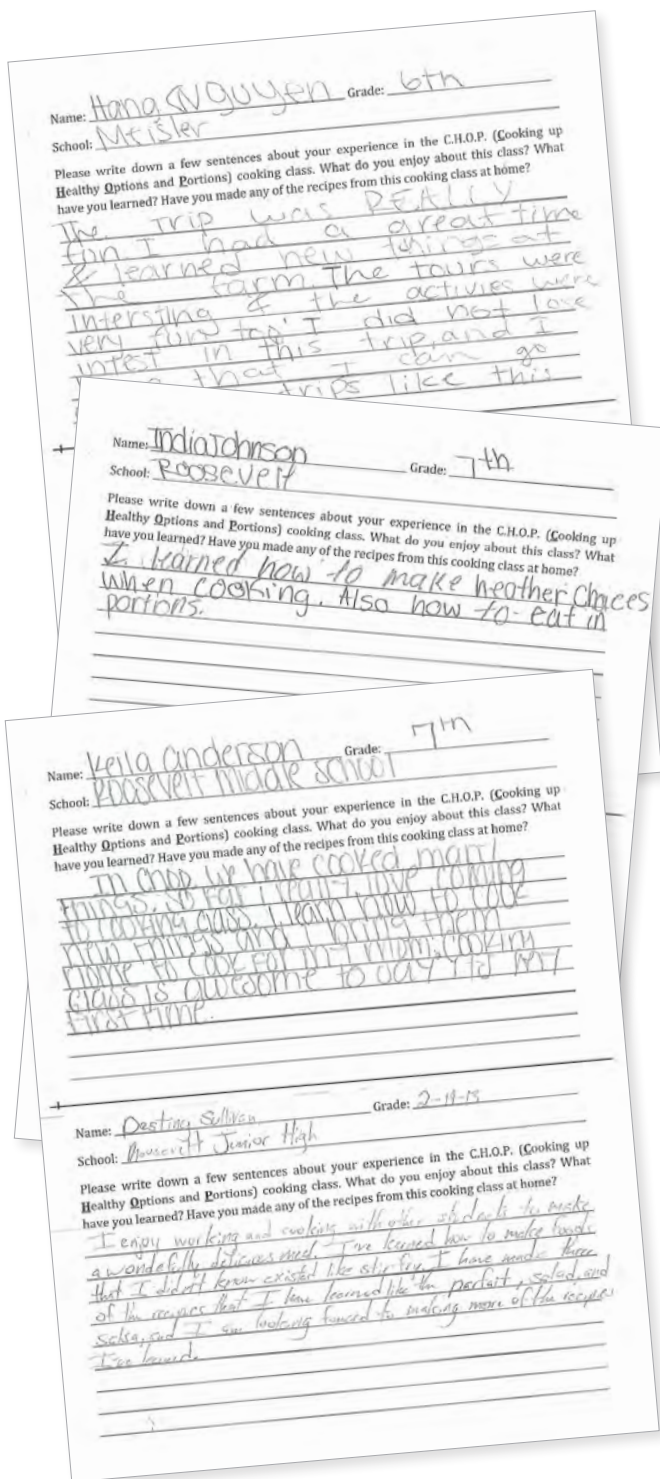 Name: Hana Nguyen Grade: 6th
School: Meisler
Please write down a few sentences about your experience in the C.H.O.P. (Cooking up
Healthy Options and Portions) cooking class. What do you enjoy about this class? What
have you learned? Have you made any of the recipes from this cooking class at home?
The trip was REALLY
fun. I had a great time
& learned new things at
the farm. The tours were
intersting & the activies were
very fun too! I did not lose
intest in this trip, and I
that I can go
trips like this
Name: India Johnson Grade: 7th
School: Roosevelt
Please write down a few sentences about your experience in the C.H.O.P. (Cooking up
Healthy Options and Portions) cooking class. What do you enjoy about this class? What
have you learned? Have you made any of the recipes from this cooking class at home?
I learned how to make heather Choices
when cooking. Also how to eat in
portions.
Name: Keila anderson Grade: 7th
School: Roosevelt middle school
Please write down a few sentences about your experience in the C.H.O.P. (Cooking up
Healthy Options and Portions) cooking class. What do you enjoy about this class? What
have you learned? Have you made any of the recipes from this cooking class at home?
In chop we have cooked many
things, so far I really love coming
to cooking class. I learn how to cook
new things and I bring them
home to cook for my mom. cooking
class is awesome to day its my
first time.
Name: Destina Sullivan Grade: 2-19-13
School: Junior High
Please write down a few sentences about your experience in the C.H.O.P. (Cooking up
Healthy Options and Portions) cooking class. What do you enjoy about this class? What
have you learned? Have you made any of the recipes from this cooking class at home?
I enjoy working and cooking with other students to make
a wondefully delicious meal. I've learned how to make foods
that I didn't know existed like stir fry. I have made three
of the recipes that I have learned like the parfait, salad, and
salsa, and I am looking forward to making more of the recipes
I've learned.